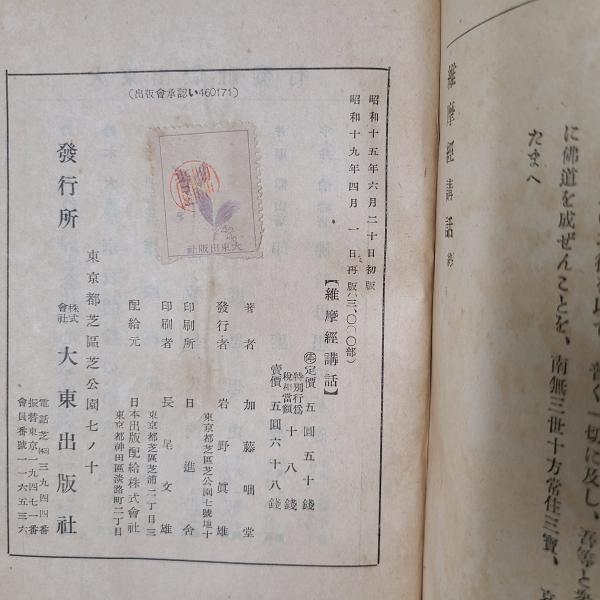 維摩經講話 終
に佛道を成ぜんことを、南無三世十方常住三寶、
たまへ
(出版會承認い460171)
昭和十五年六月二十日初版
昭和十九年四月一日再版(三、〇〇〇部)
【維摩經講話】
定價 五圓五十錢
特別行爲稅相當額 十八錢
賣價 五圓六十八錢
著者 加藤咄堂
東京都芝區芝公園七號地十
發行者 岩野眞雄
印刷所 日進舍
東京都芝區芝浦二丁目三
印刷者 長尾文雄
配給元 日本出版配給株式會社
東京都神田區淡路町二丁目
大東出版社
發行所
東京都芝區芝公園七ノ十
株式會社 大東出版社
電話芝(43)三九四四番
振替東京一九四七一番
會員番號一一六五三六